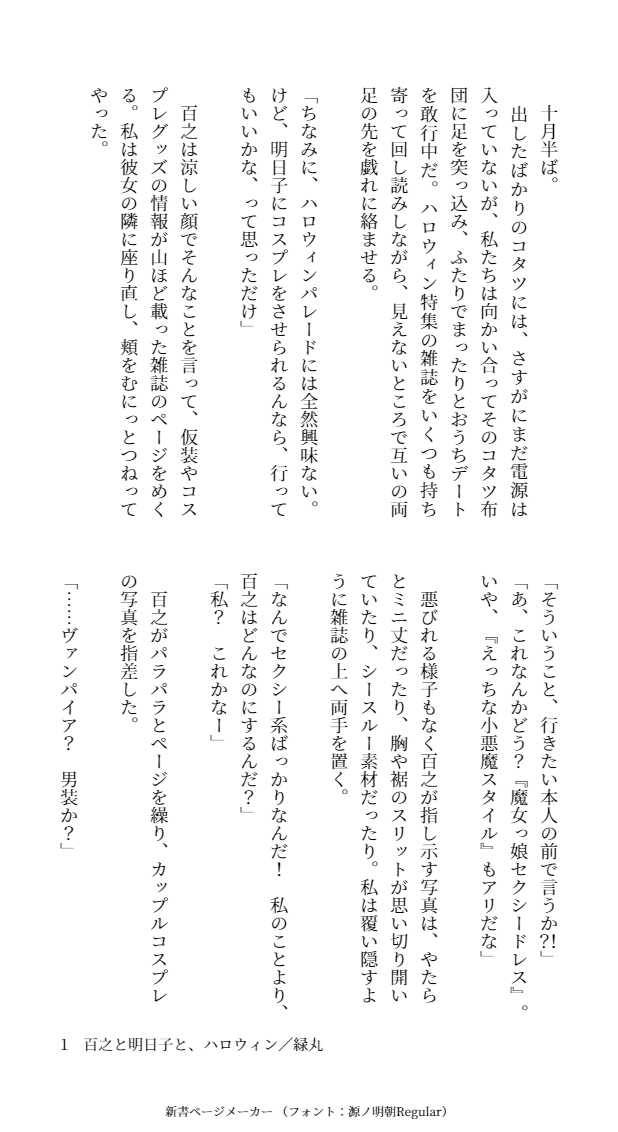 十月半ば。
出したばかりのコタツには、さすがにまだ電源は
入っていないが、私たちは向かい合ってそのコタツ布
団に足を突っ込み、ふたりでまったりとおうちデート
を敢行中だ。ハロウィン特集の雑誌をいくつも持ち
寄って回し読みしながら、見えないところで互いの両
足の先を戯れに絡ませる。
「ちなみに、ハロウィンパレードには全然興味ない。
けど、明日子にコスプレをさせられるんなら、行って
もいいかな、って思っただけ」
百之は涼しい顔でそんなことを言って、仮装やコス
プレグッズの情報が山ほど載った雑誌のページをめく
る。私は彼女の隣に座り直し、頬をむにっとつねって
やった。
「そういうこと、行きたい本人の前で言うか?!」
「あ、これなんかどう？『魔女っ娘セクシードレス』。
いや、『えっちな小悪魔スタイル』もアリだな」
悪びれる様子もなく百之が指し示す写真は、やたら
とミニ丈だったり、胸や裾のスリットが思い切り開い
ていたり、シースルー素材だったり。私は覆い隠すよ
うに雑誌の上へ両手を置く。
「なんでセクシー系ばっかりなんだ！　私のことより、
百之はどんなのにするんだ？」
「私？　これかなー」
百之がパラパラとページを繰り、カップルコスプレ
の写真を指差した。
「……ヴァンパイア？　男装か？」
1　百之と明日子と、ハロウィン／緑丸
新書ページメーカー（フォント：源ノ明朝Regular）